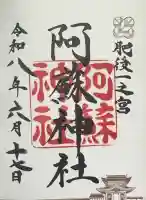 肥後一之宮
阿蘇神社
阿蘇神社
令和八年六月十七日